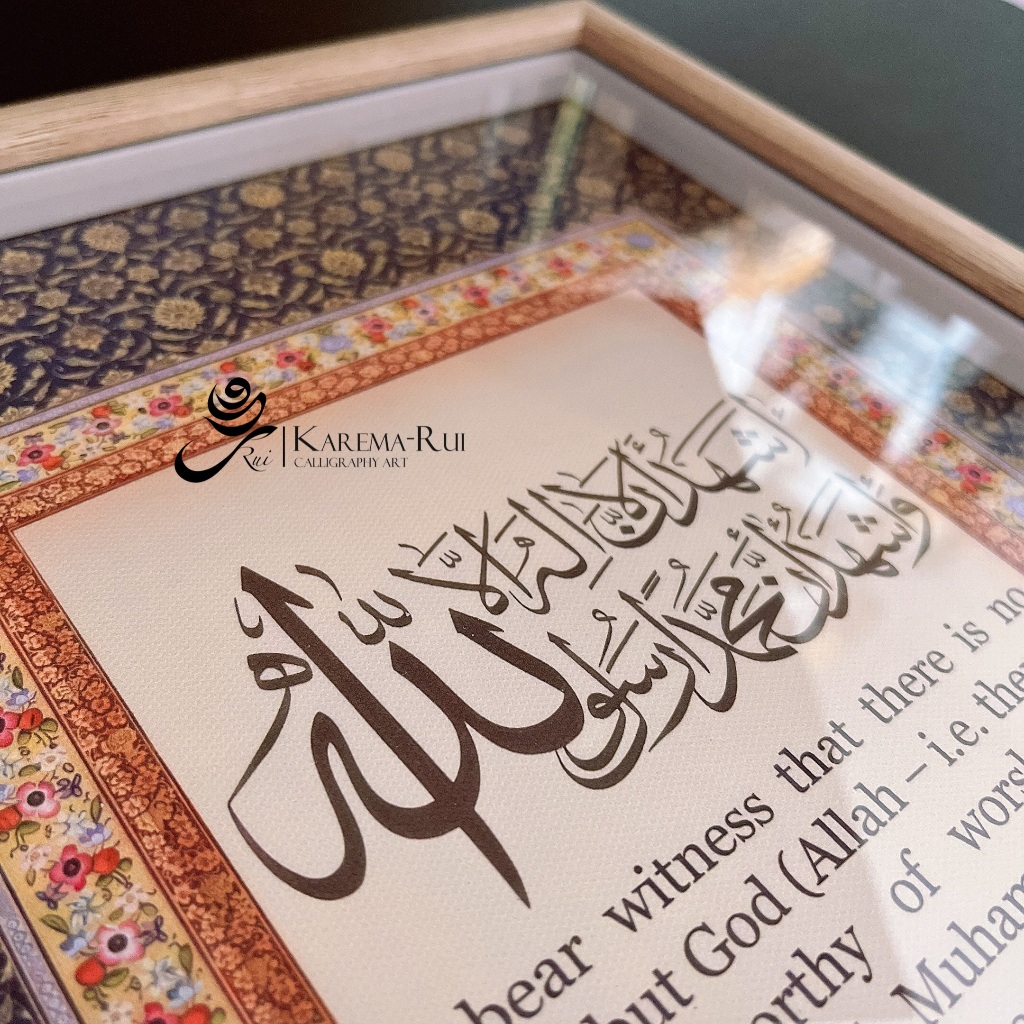 Rui
KAREMA-RUI
CALLIGRAPHY ART
أشهد أن لا إله إلا
وأشهد أن محمدًا رسول
الله
bear witness that there is no
but God (Allah – i.e.
of